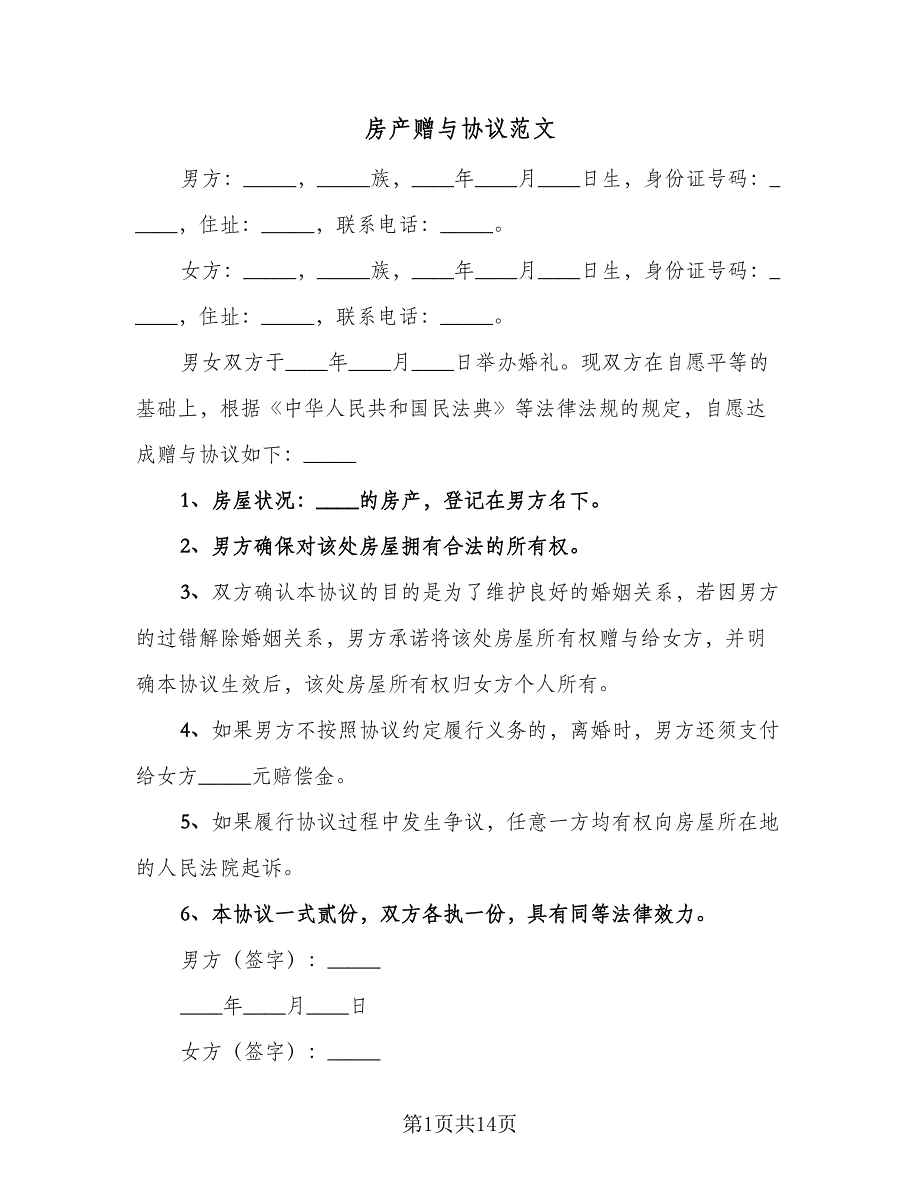 房产赠与协议范文
男方：_____，_____族，____年____月____日生，身份证号码：_
____，住址：_____，联系电话：_____。
女方：_____，_____族，____年____月____日生，身份证号码：_
____，住址：_____，联系电话：_____。
男女双方于____年____月____日举办婚礼。现双方在自愿平等的
基础上，根据《中华人民共和国民法典》等法律法规的规定，自愿达
成赠与协议如下：_____
1、房屋状况：____的房产，登记在男方名下。
2、男方确保对该处房屋拥有合法的所有权。
3、双方确认本协议的目的是为了维护良好的婚姻关系，若因男方
的过错解除婚姻关系，男方承诺将该处房屋所有权赠与给女方，并明
确本协议生效后，该处房屋所有权归女方个人所有。
4、如果男方不按照协议约定履行义务的，离婚时，男方还须支付
给女方_____元赔偿金。
5、如果履行协议过程中发生争议，任意一方均有权向房屋所在地
的人民法院起诉。
6、本协议一式贰份，双方各执一份，具有同等法律效力。
男方（签字）：_____
____年____月____日
女方（签字）：_____
第1页共14页